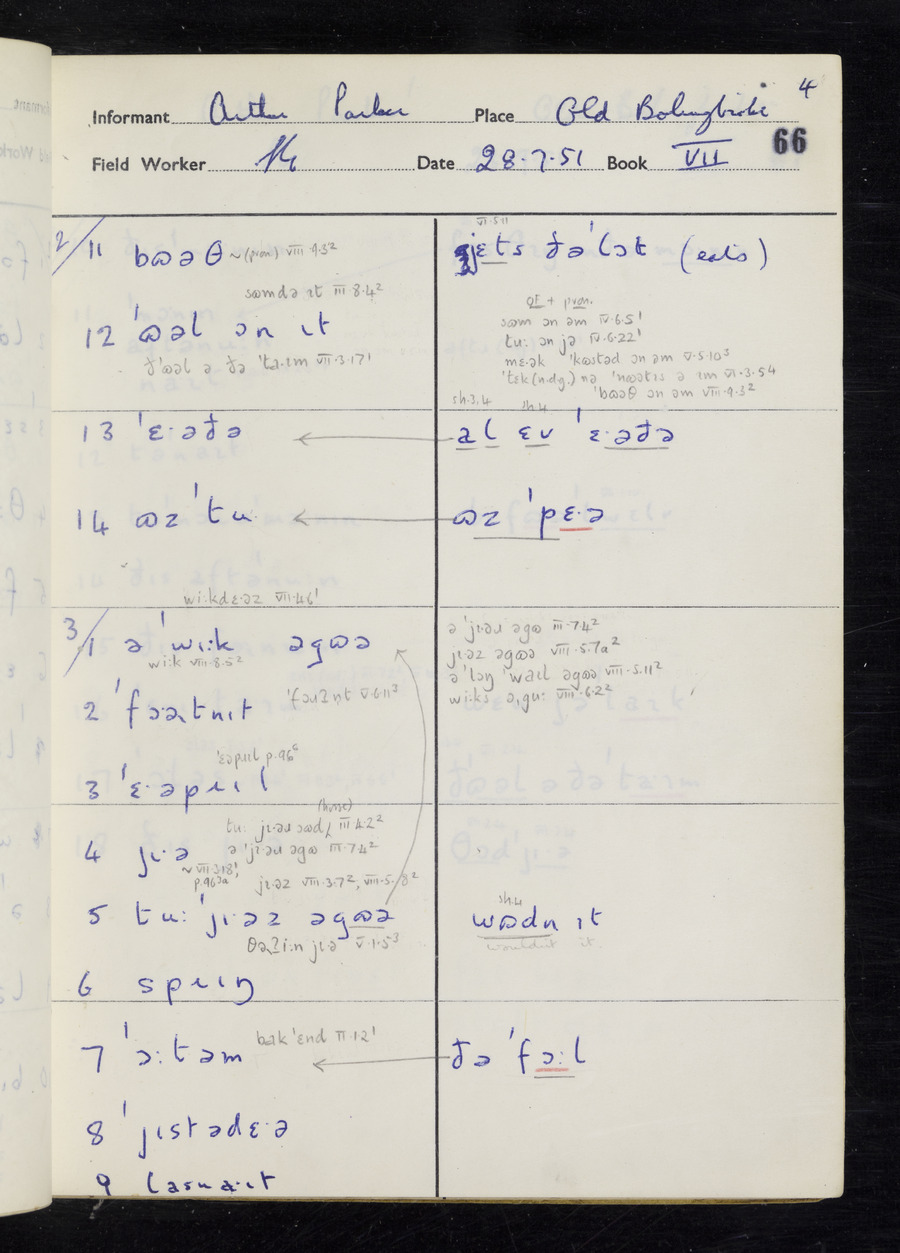 4
Informant Arthur Parker Place Old Bolingbroke
66
Field Worker Date 28.7.51 Book VII
VI.5.11
2/ 11 bɷəθ ~ (pron) VIII.9.3² jɛts ðəˈlɔt (eats)
sɷmdə ɪt III.8.4²
12 ˈɷəl ɔn ɪt
ðˈɷəl ə ðə ˈtaːɪm VII.3.17¹
OF + pron.
sɷm ɔn əm IV.6.5¹
tuː ɔn jə IV.6.22¹
mɛək ˈkɷstəd ɔn əm V.5.10³
ˈtɛk (n.dg.) nə ˈnɷətɪs ə ɪm VI.3.5⁴
ˈbɷəθ ɔn əm VIII.9.3²
sh.3,4 sh.4
13 ˈɛ·əðə ← al ɛv ˈɛ·əðə
14 ɷzˈtu ← ɷzˈpɛ·ə
wiːkdɛəz VII.4.6¹
3/ 1 əˈwɪːk əgɷə
wiːk VIII.8.5²
ə ˈjɪəɹ əgɷ III.7.4²
jɪəz əgɷə VIII.5.7a²
əˈlɔŋ ˈwaɪl əgɷə VIII.5.11²
wiːks əˌguː VIII.6.2²
2 ˈfɔətnɪt ˈfɔɹʔnt V.6.11³
ˈɛəpɹɪl p.96⁶
3 ˈɛ·əpɹɪl
(horse)
tuː jɪəɹ ɔɷd III.4.2²
4 jɪ·ə ə ˈjɪəɹ əgɷ III.7.4²
~ VII.3.18¹
p.96³a jɪəz VIII.3.7², VIII.5.8²
sh.4
5 tuː ˈjɪ·əz əgɷə wɷdn ɪt
θəʔiːn jɪə V.1.5³ wouldn't it
6 spɹɪŋ
7 ˈɔːtəm bakˈɛnd II.12¹ ← ðəˈfɔːl
8 ˈjɪstədɛ·ə
9 lasnaɪt